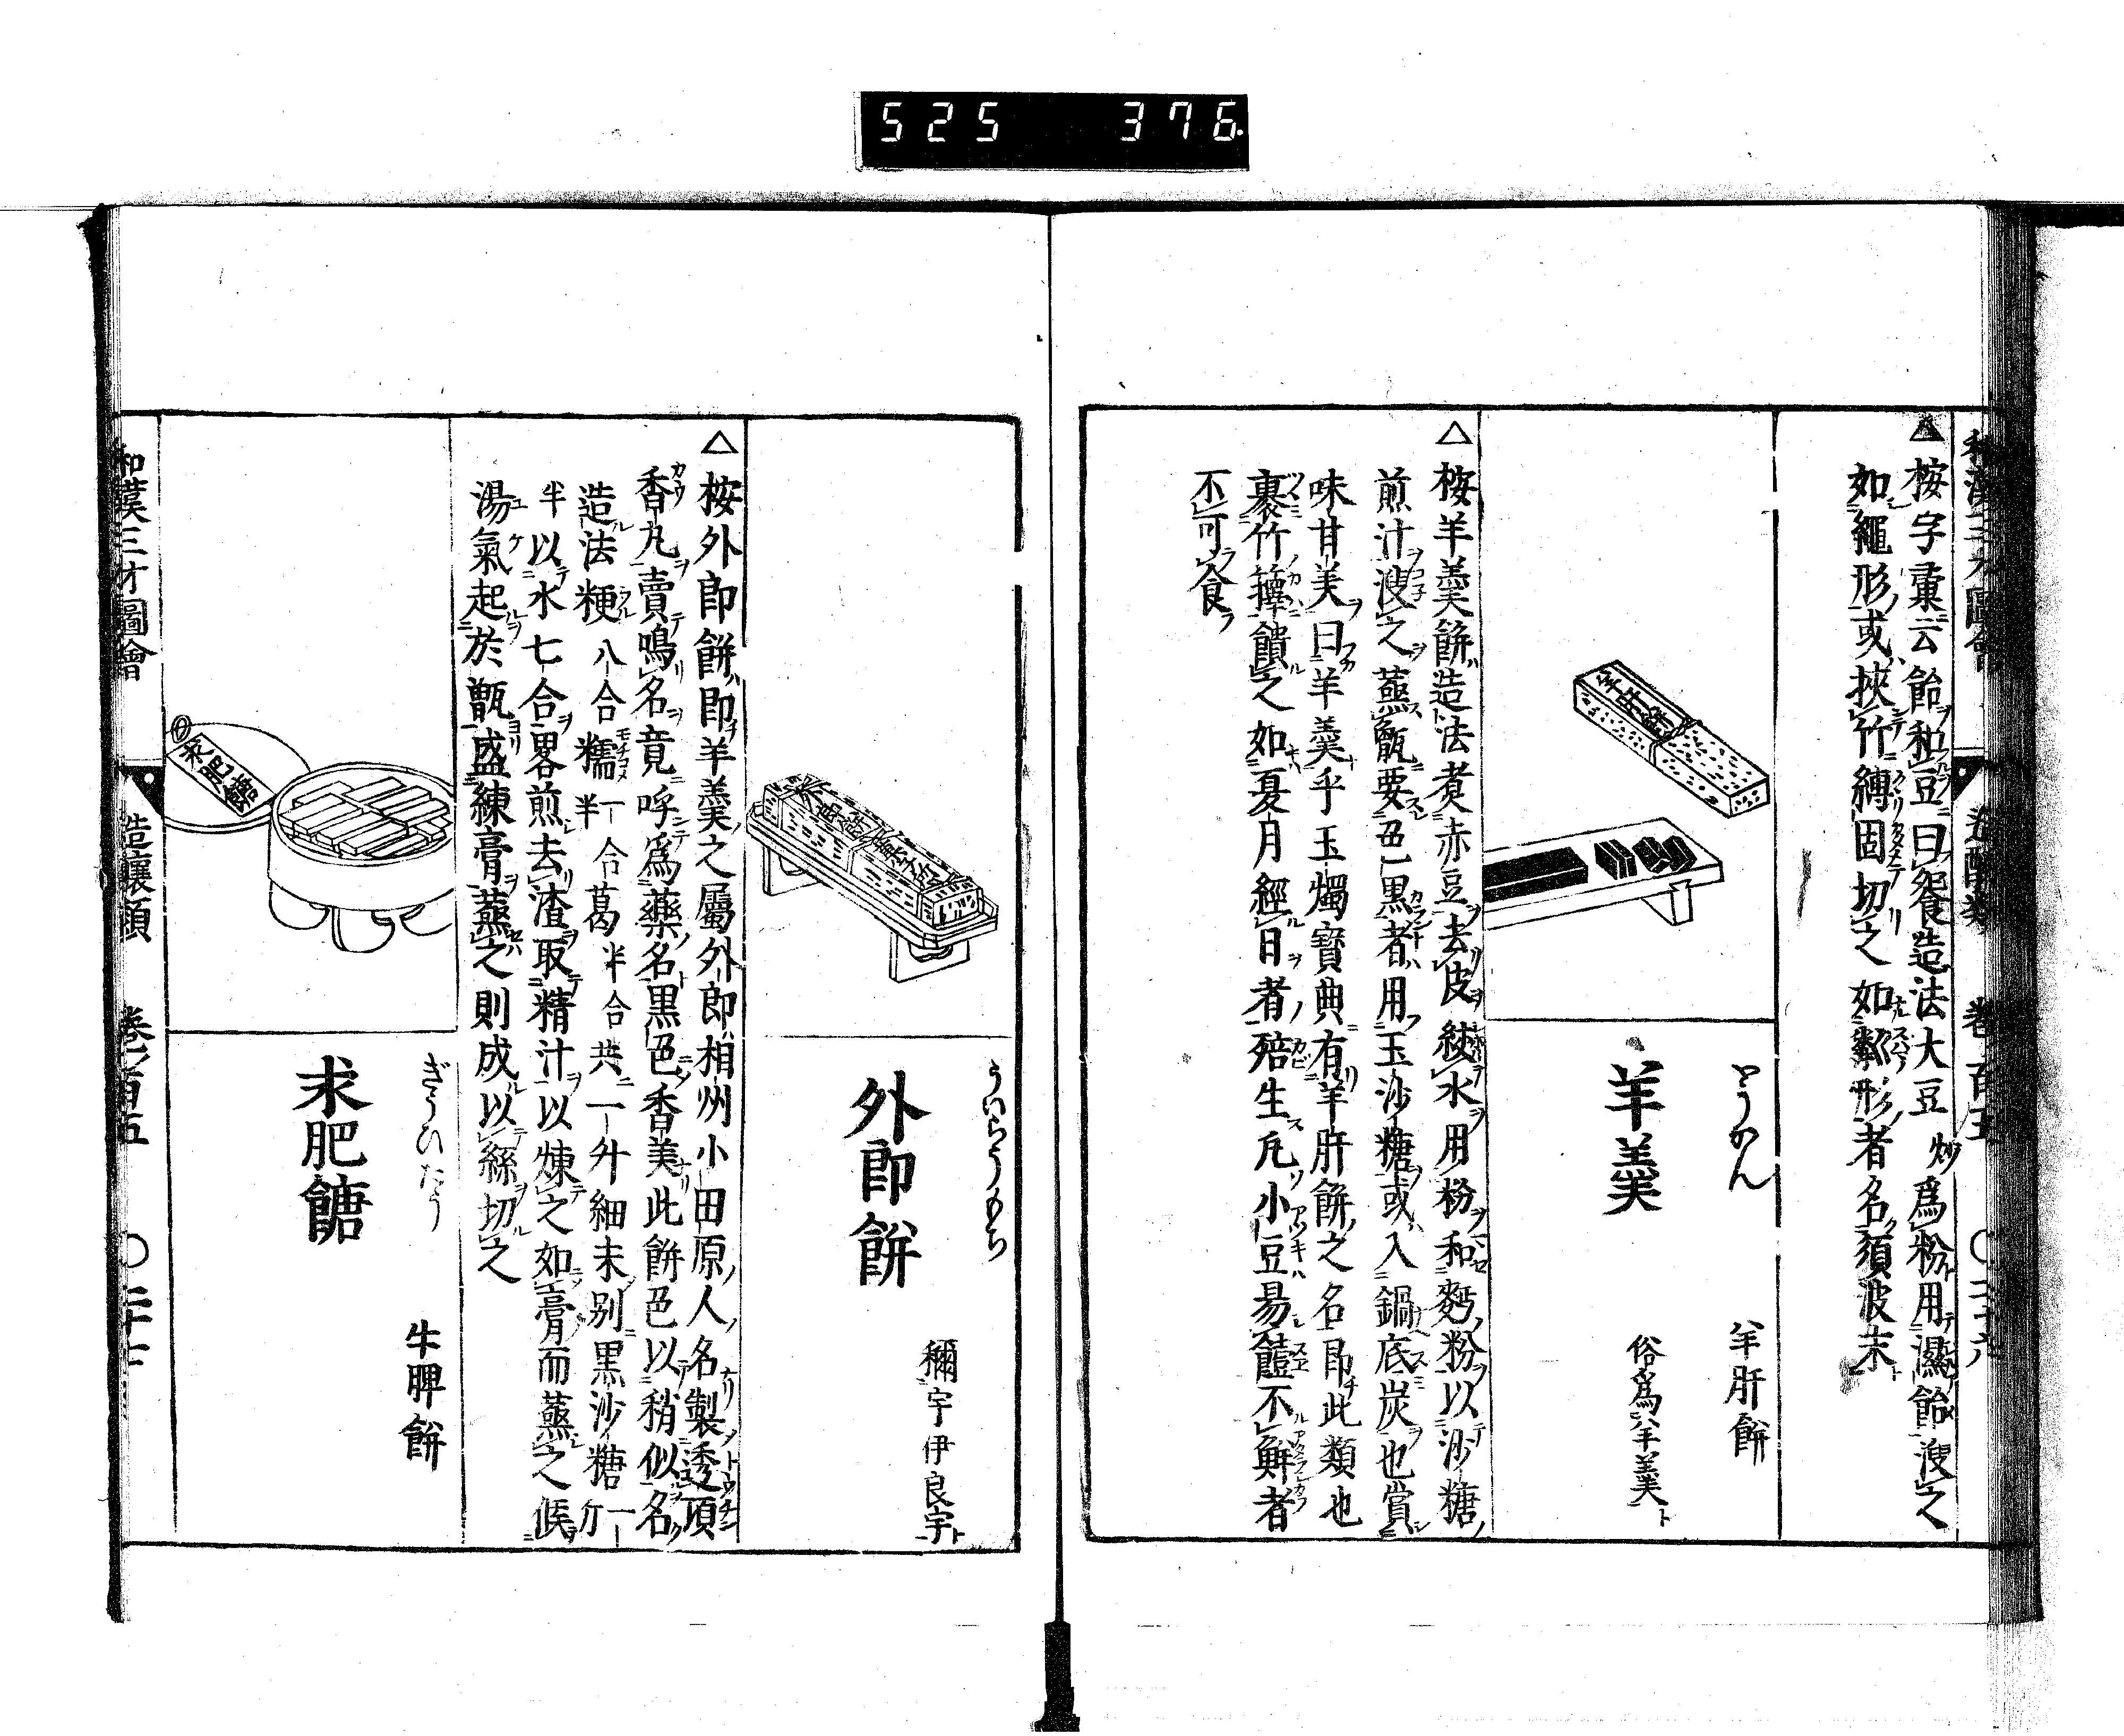 525 376
和漢三才圖會 造釀類 卷百五 〇二十六
△按字彙云飴和豆曰餐造法大豆炒爲粉用濕飴溲之
如繩形或挾竹縛固切之如繇形者名須波末
やうかん
羊羹
羊肝餅
俗爲羊羹
羊肝餅
△按羊羹餅造法煑赤豆去皮絞水用粉和麪粉以沙糖
煎汁溲之蒸甑要色黒者用玉沙糖或入鍋底炭也賞
味甘美曰羊羹乎玉燭寶典有羊肝餅之名卽此類也
裹竹籜饋之如夏月經日者殕生凡小豆易饐不鮮者
不可食
ういらうもち
外郎餅
稱宇伊良宇
△按外郎餅卽羊羹之屬外郎相州小田原人名製透頂
香丸賣鳴名竟呼爲藥名黒色香美此餅色以稍似名
造法粳八合糯一合半葛半合共一升細末別黒沙糖一斤
半以水七合畧煎去渣取精汁以煉之如膏而蒸之候
湯氣起於甑盛練膏蒸之則成以絲切之
求肥餹
ぎうひたう
求肥餹
牛脾餅
和漢三才圖會 造釀類 卷ノ百五 〇二十七